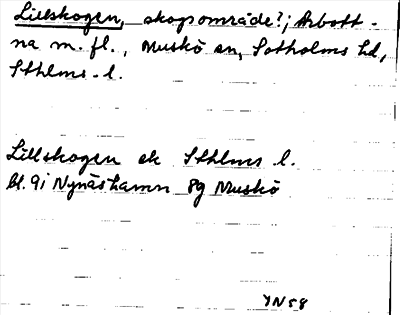 Lillskogen, skogsområde?; Arbott-
na m. fl., Muskö sn, Sotholms hd,
Sthlms l.
Lillskogen ek Sthlms l.
bl. 9i Nynäshamn 8g Muskö
YN58